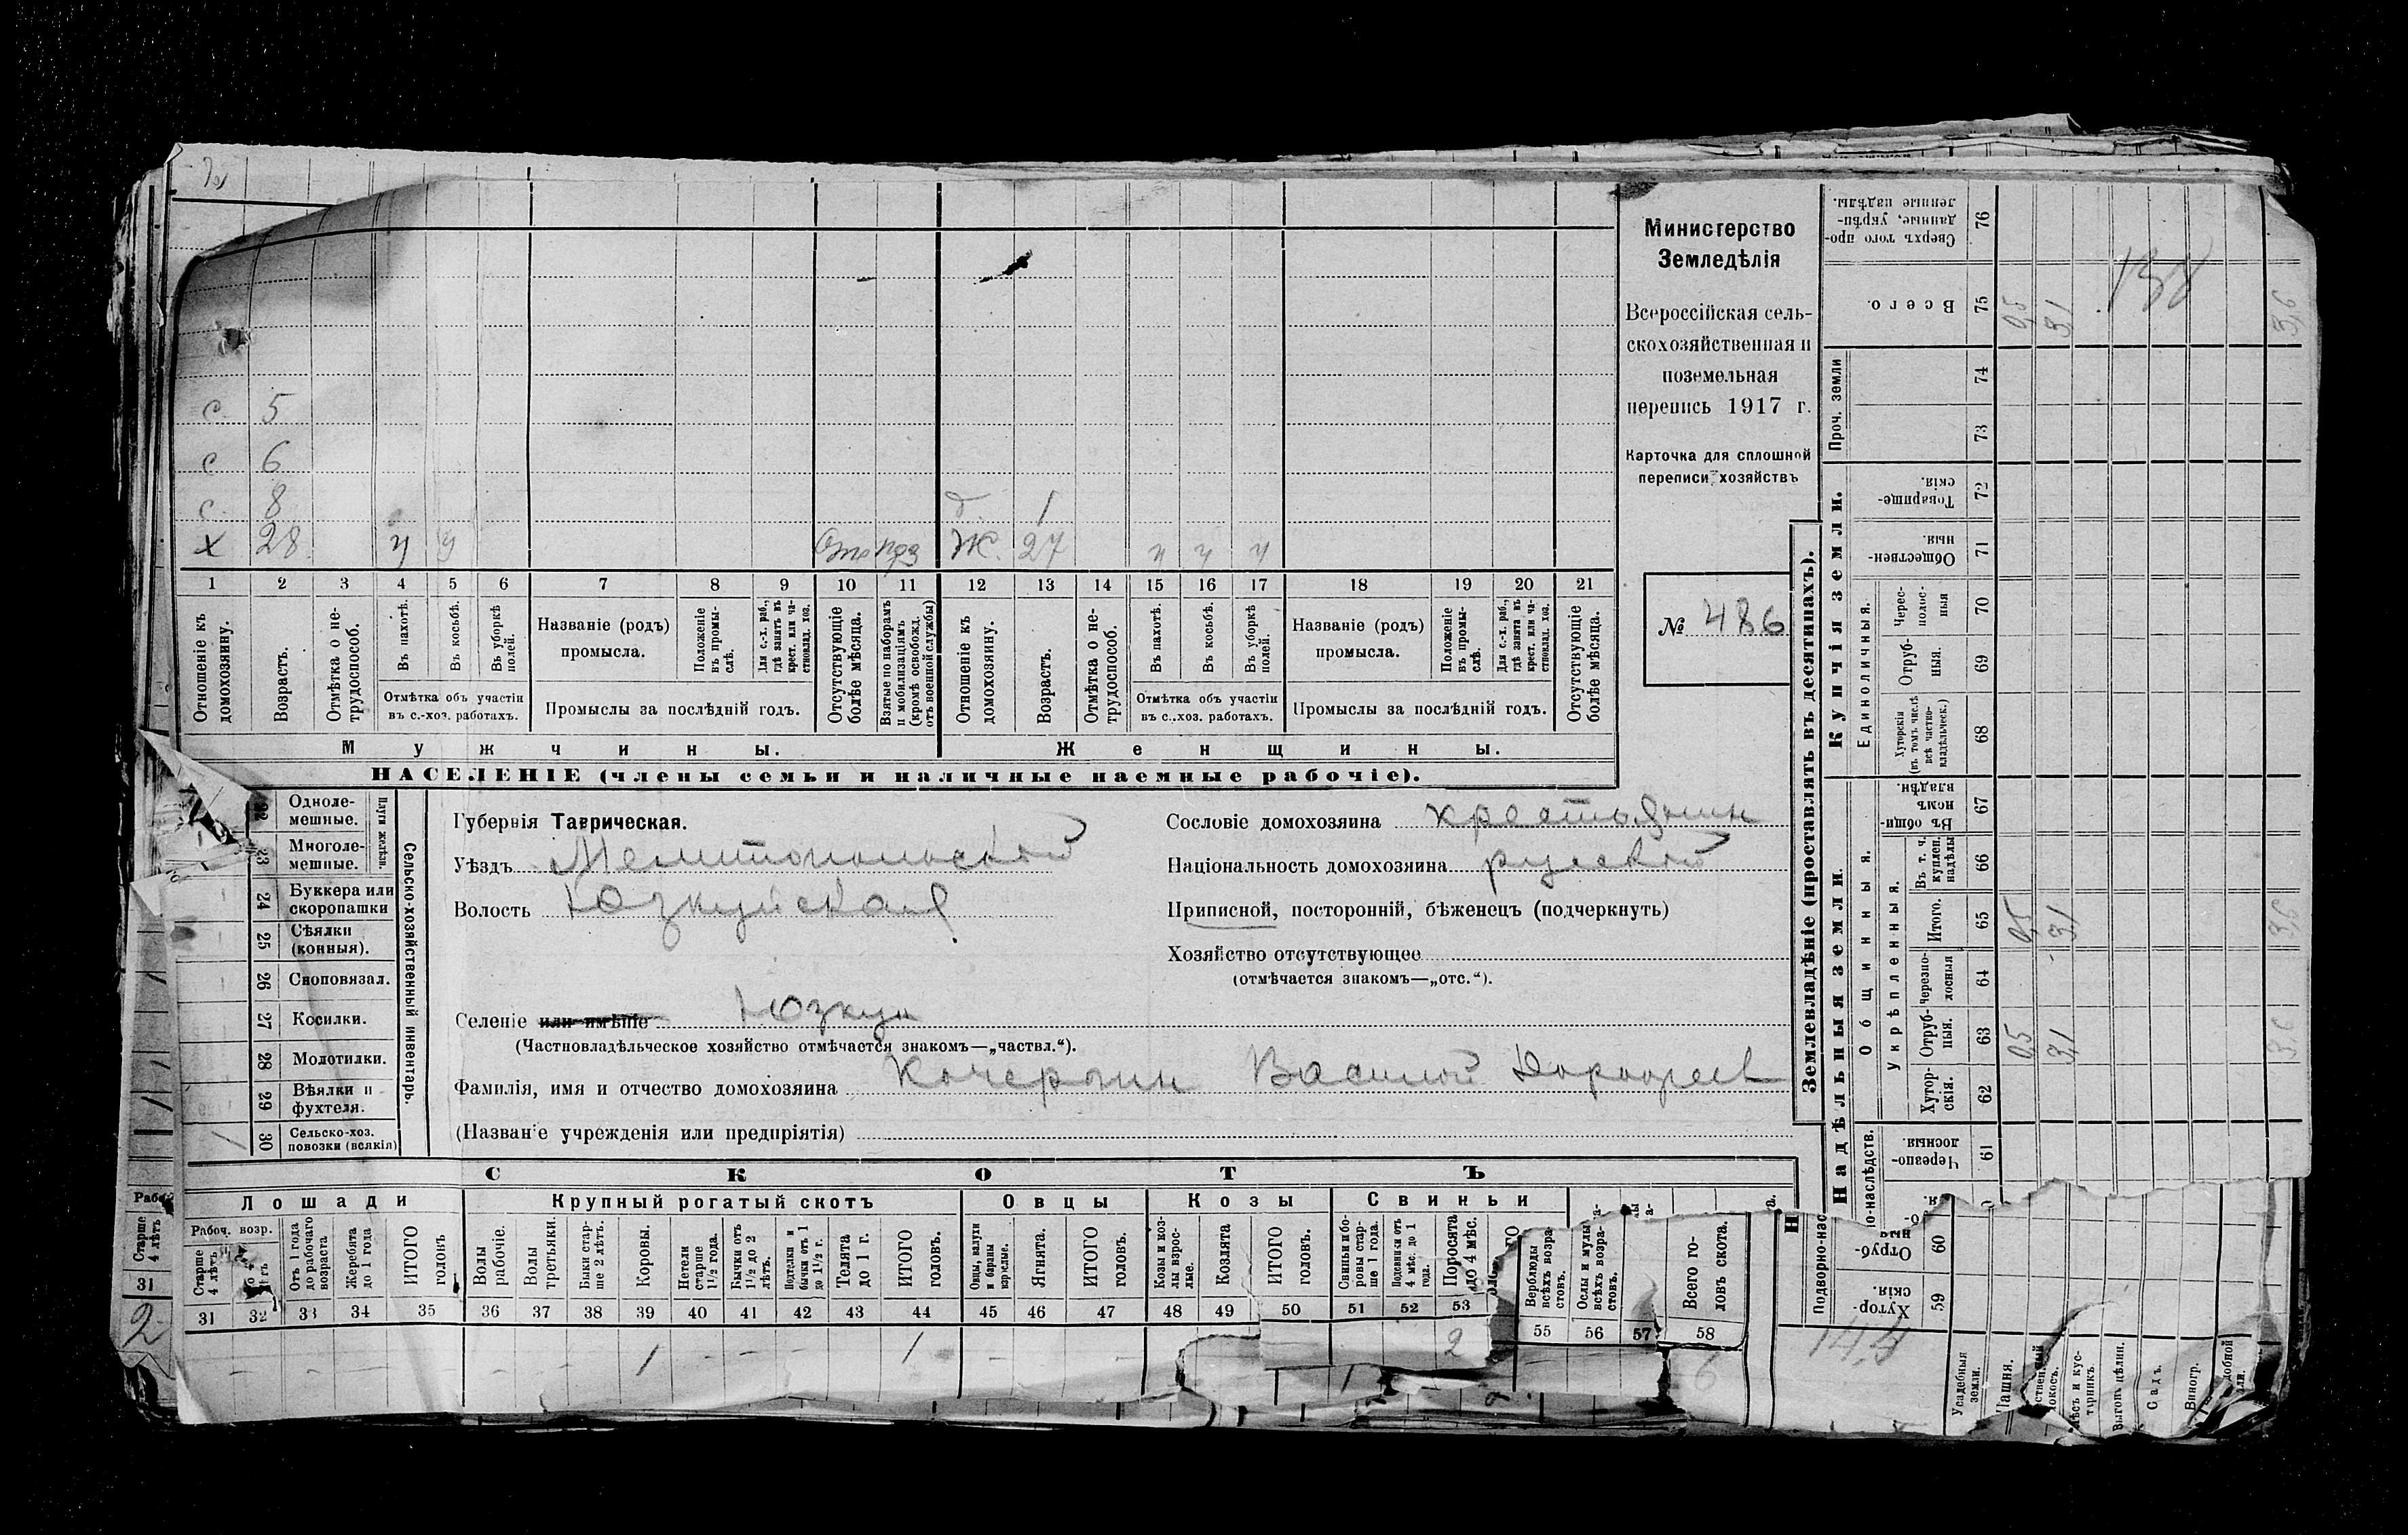 с 5
с 6
с 8
д 1
х 28 у у Отс Ж. 27 ч ч ч
1 2 3 4 5 6 7 8 9 10 11 12 13 14 15 16 17 18 19 20 21
Отношеніе къ домохозяину.
Возрастъ.
Отмѣтка о не-трудоспособ.
Въ пахотѣ.
Въ косьбѣ.
Въ уборкѣ полей.
Отмѣтка объ участіи въ с.-хоз. работахъ.
Названіе (родъ) промысла.
Положеніе въ промы-слѣ.
Для с.-х. раб., гдѣ занятъ въ крест. или ча-стновлад. хоз.
Промыслы за послѣдній годъ.
Отсутствующіе болѣе мѣсяца.
Взятые по наборамъ и мобилизаціямъ (кромѣ освобожд. отъ военной службы)
Отношеніе къ домохозяину.
Возрастъ.
Отмѣтка о не-трудоспособ.
Въ пахотѣ.
Въ косьбѣ.
Въ уборкѣ полей.
Отмѣтка объ участіи въ с.-хоз. работахъ.
Названіе (родъ) промысла.
Положеніе въ промы-слѣ.
Для с.-х. раб., гдѣ занята въ крест. или ча-стновлад. хоз.
Промыслы за послѣдній годъ.
Отсутствующіе болѣе мѣсяца.
Мужчины.
Женщины.
НАСЕЛЕНІЕ (члены семьи и наличные наемные рабочіе).
Министерство
Земледѣлія
Всероссійская сель-
скохозяйственная и
поземельная
перепись 1917 г.
Карточка для сплошной
переписи хозяйствъ
№ 486
22 Одноле-мешные.
23 Многоле-мешные.
Плуги желѣзн.
24 Буккера или скоропашки
25 Сѣялки (конныя).
26 Сноповязал.
27 Косилки.
28 Молотилки.
29 Вѣялки и фухтеля.
30 Сельско-хоз. повозки (всякія)
1
Сельско-хозяйственный инвентарь.
Губернія Таврическая.
Уѣздъ Мелитопольский
Волость Юзкуйская
Селеніе или имѣніе Юзкуи
(Частновладѣльческое хозяйство отмѣчается знакомъ—„частвл.“).
Фамилія, имя и отчество домохозяина Кочергин Василий Дорофеев
(Названіе учрежденія или предпріятія)
Сословіе домохозяина крестьянин
Національность домохозяина русский
Приписной, посторонній, бѣженецъ (подчеркнуть)
Хозяйство отсутствующее
(отмѣчается знакомъ—„отс.“).
СКОТЪ
Лошади
Крупный рогатый скотъ
Овцы
Козы
Свиньи
Рабоч. возр.
Старше 4 лѣтъ
Отъ 1 года до рабочаго возраста
Жеребята до 1 года
ИТОГО головъ
Волы рабочіе.
Волы третьяки.
Быки стар-ше 2 лѣтъ.
Коровы.
Нетели старше 1½ года.
Бычки отъ 1½ до 2 лѣтъ.
Подтелки и бычки отъ 1 до 1½ г.
Телята до 1 г.
ИТОГО головъ.
Овцы, валухи и бараны взрослые.
Ягнята.
ИТОГО головъ.
Козы и коз-лы взрос-лые.
Козлята
ИТОГО головъ.
Свиньи и бо-ровы стар-ше 1 года.
Подсвинки отъ 4 мѣс. до 1 года.
Поросята до 4 мѣс.
Верблюды всѣхъ возра-стовъ.
Ослы и мулы всѣхъ возра-стовъ.
Всего го-ловъ скота.
31 32 33 34 35 36 37 38 39 40 41 42 43 44 45 46 47 48 49 50 51 52 53 55 56 57 58
- - - - 1 - - 1 - - 2 6
Старше 4 лѣтъ
31
2
Землевладѣніе (проставлять въ десятинахъ).
Купчія земли.
Надѣльныя земли.
Сверхъ того про-данные, укрѣп-ленные надѣлы. 76
Всего. 75 0,5 3,1 3,6
138
Проч. земли 74 73
Товарище-скія. 72
Обществен-ныя. 71
Единоличныя.
Черес-полос-ныя 70
Отруб-ныя. 69
Хуторскія (въ томъ числѣ всѣ частно-владѣльческ.) 68
Общинныя.
Въ общи-номъ владѣн. 67
Укрѣпленныя.
Въ т. ч. куплен. надѣлы 66
Итого. 65 0,5 3,1 3,6
Черезпо-лосныя 64
Отруб-ныя. 63 0,5 3,1 3,6
Хутор-скія. 62
Черезпо-лосныя. 61
Отруб-ныя 60
Хутор-скія. 59
14,4
Усадебныя земли.
Пашня.
Выгонъ цѣлин.
Садъ.
Виногр.